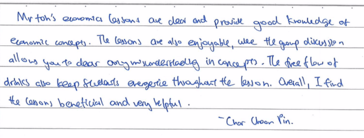 Mr Toh's economics lessons are clear and provide good knowledge of
economic concepts. The lessons are also enjoyable, were the group discussion
allows you to clear any misunderstanding in concepts. The free flow of
drinks also keep students energetic throughout the lesson. Overall, I find
the lessons beneficial and very helpful.
- Char Choon Pin.